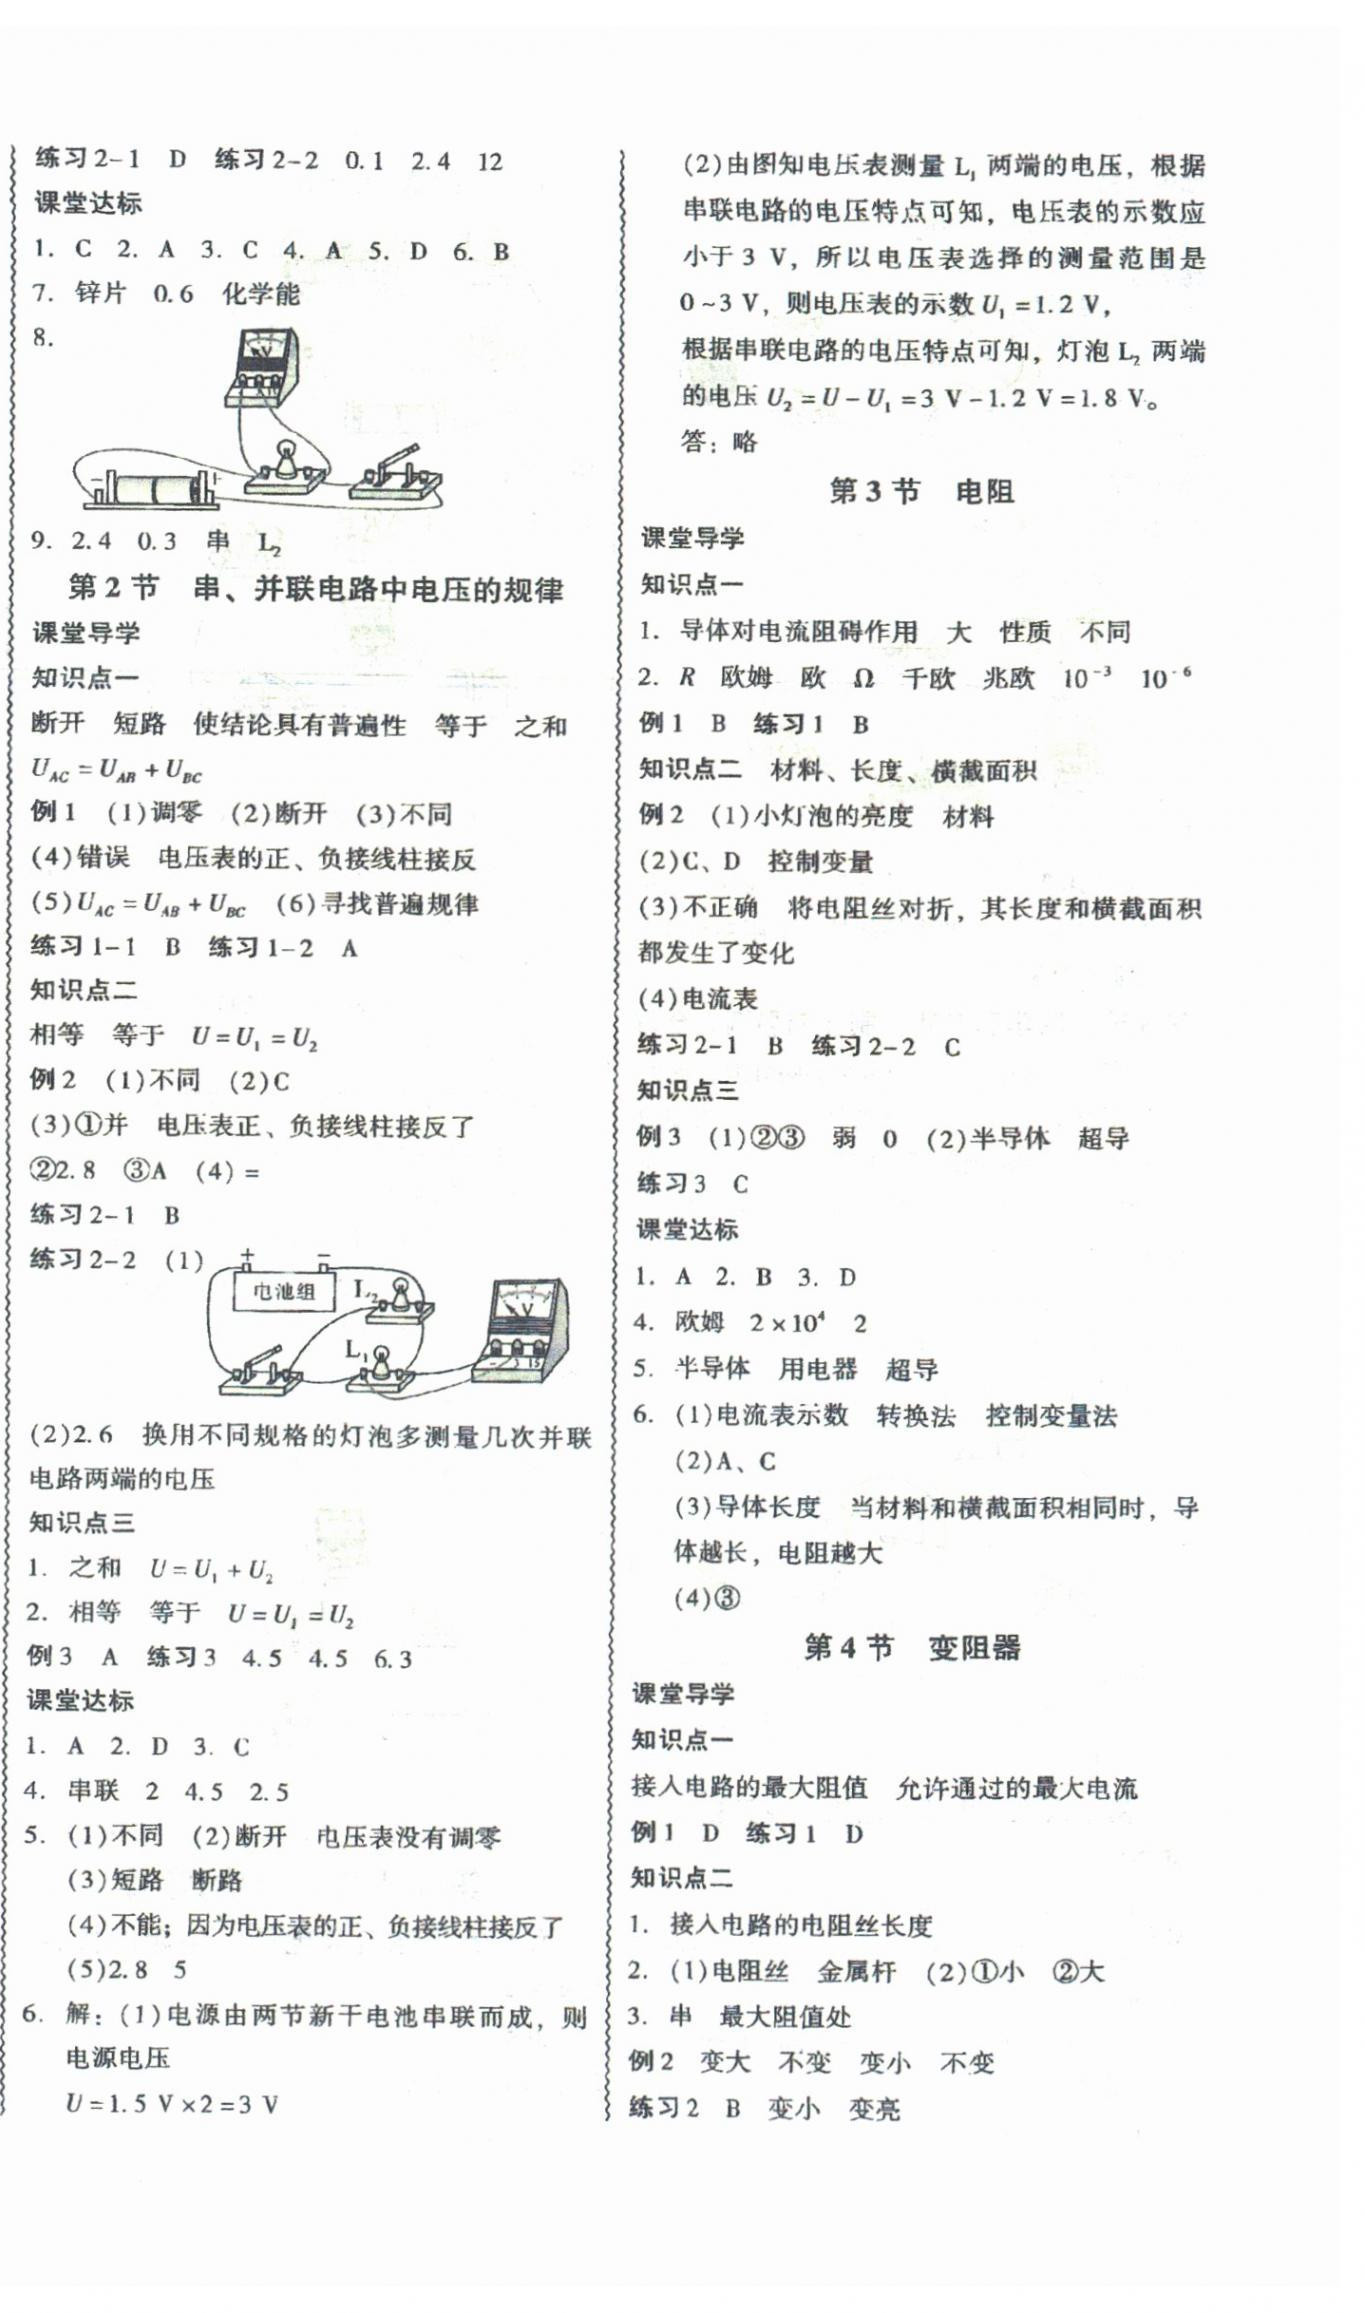 练习2-1 D 练习2-2 0.1 2.4 12
课堂达标
1. C 2. A 3. C 4. A 5. D 6. B
7. 锌片 0.6 化学能
8.
V
- +
9. 2.4 0.3 串 L₂
第2节 串、并联电路中电压的规律
课堂导学
知识点一
断开 短路 使结论具有普遍性 等于 之和
U_AC = U_AB + U_BC
例1 (1)调零 (2)断开 (3)不同
(4)错误 电压表的正、负接线柱接反
(5)U_AC = U_AB + U_BC (6)寻找普遍规律
练习1-1 B 练习1-2 A
知识点二
相等 等于 U = U₁ = U₂
例2 (1)不同 (2)C
(3)①并 电压表正、负接线柱接反了
②2.8 ③A (4) =
练习2-1 B
练习2-2 (1)
+ -
电池组
L₂
L₁
V
- 3 15
(2)2.6 换用不同规格的灯泡多测量几次并联
电路两端的电压
知识点三
1. 之和 U = U₁ + U₂
2. 相等 等于 U = U₁ = U₂
例3 A 练习3 4.5 4.5 6.3
课堂达标
1. A 2. D 3. C
4. 串联 2 4.5 2.5
5. (1)不同 (2)断开 电压表没有调零
(3)短路 断路
(4)不能；因为电压表的正、负接线柱接反了
(5)2.8 5
6. 解：(1)电源由两节新干电池串联而成，则
电源电压
U = 1.5 V × 2 = 3 V
(2)由图知电压表测量 L₁ 两端的电压，根据
串联电路的电压特点可知，电压表的示数应
小于 3 V，所以电压表选择的测量范围是
0~3 V，则电压表的示数 U₁ = 1.2 V，
根据串联电路的电压特点可知，灯泡 L₂ 两端
的电压 U₂ = U - U₁ = 3 V - 1.2 V = 1.8 V。
答：略
第3节 电阻
课堂导学
知识点一
1. 导体对电流阻碍作用 大 性质 不同
2. R 欧姆 欧 Ω 千欧 兆欧 10⁻³ 10⁻⁶
例1 B 练习1 B
知识点二 材料、长度、横截面积
例2 (1)小灯泡的亮度 材料
(2)C、D 控制变量
(3)不正确 将电阻丝对折，其长度和横截面积
都发生了变化
(4)电流表
练习2-1 B 练习2-2 C
知识点三
例3 (1)②③ 弱 0 (2)半导体 超导
练习3 C
课堂达标
1. A 2. B 3. D
4. 欧姆 2×10⁴ 2
5. 半导体 用电器 超导
6. (1)电流表示数 转换法 控制变量法
(2)A、C
(3)导体长度 当材料和横截面积相同时，导
体越长，电阻越大
(4)③
第4节 变阻器
课堂导学
知识点一
接入电路的最大阻值 允许通过的最大电流
例1 D 练习1 D
知识点二
1. 接入电路的电阻丝长度
2. (1)电阻丝 金属杆 (2)①小 ②大
3. 串 最大阻值处
例2 变大 不变 变小 不变
练习2 B 变小 变亮